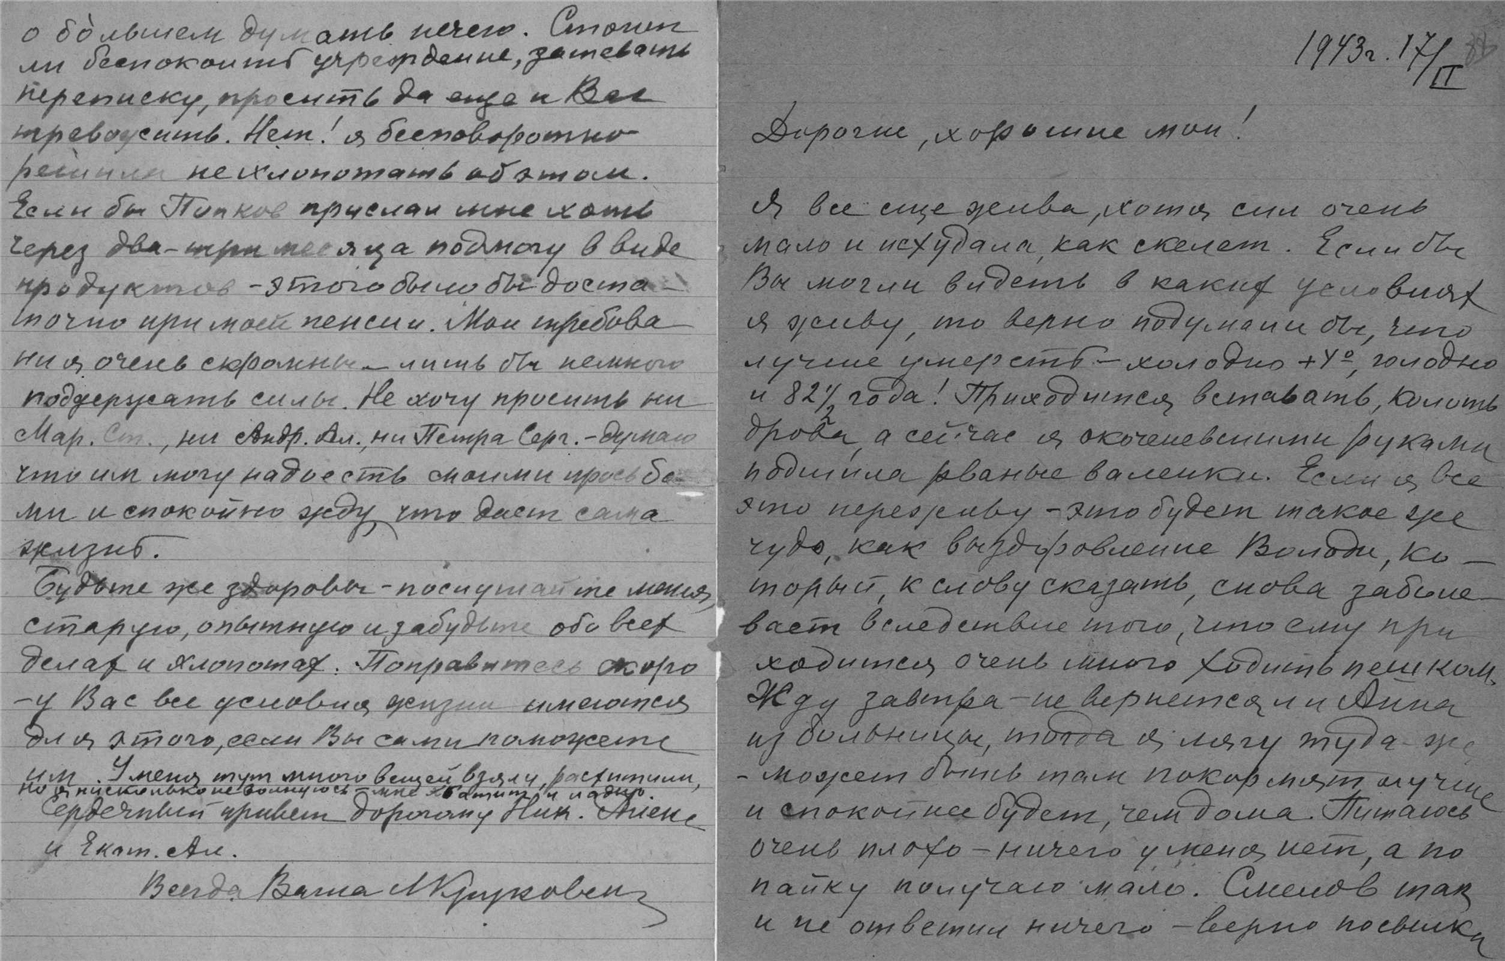 1943г. 17/II
Дорогие, хорошие мои!
Я все еще жива, хотя сил очень
мало и исхудала, как скелет. Если бы
Вы могли видеть в каких условиях
я живу, то верно подумали бы, что
лучше умереть – холодно +4º, голодно
и 82 1/2 года! Приходится вставать, колоть
дрова, а сейчас я окоченевшими руками
подшила рваные валенки. Если я все
это переживу – это будет такое же
чудо, как выздоровление Володи, ко-
торый, к слову сказать, снова заболе-
вает вследствие того, что ему при
ходится очень много ходить пешком.
Жду завтра – не вернется ли Анна
из больницы, тогда я лягу туда же
– может быть там покормят лучше
и спокойнее будет, чем дома. Питаюсь
очень плохо – ничего у меня нет, а по
пайку получаю мало. Смелов так
и не ответил ничего – верно посылки
о бо́льшем думать нечего. Стоит
ли беспокоить учреждение, затевать
переписку, просить да еще и Вас
тревожить. Нет! я бесповоротно
решила не хлопотать об этом.
Если бы Попков прислал мне хоть
через два-три месяца подмогу в виде
продуктов – этого было бы доста-
точно при моей пенсии. Мои требова-
ния очень скромны – лишь бы немного
поддержать силы. Не хочу просить ни
Мар. Ст., ни Андр. Ал., ни Петра Серг. – думаю
что им могу надоесть своими прось ба-
ми и спокойно жду, что даст сама
жизнь.
Будьте же здоровы – послушайте меня,
старую, опытную и забудьте обо всех
делах и хлопотах. Поправитесь скоро
– у Вас все условия жизни имеются
для этого, если Вы сами поможете
им. У меня тут много вещей взяли, расхитили,
но я нисколько не волнуюсь – мне хватит и ладно.
Сердечный привет дорогому Ник. Алене
и Екат. Ал.
Всегда Ваша М Круковск